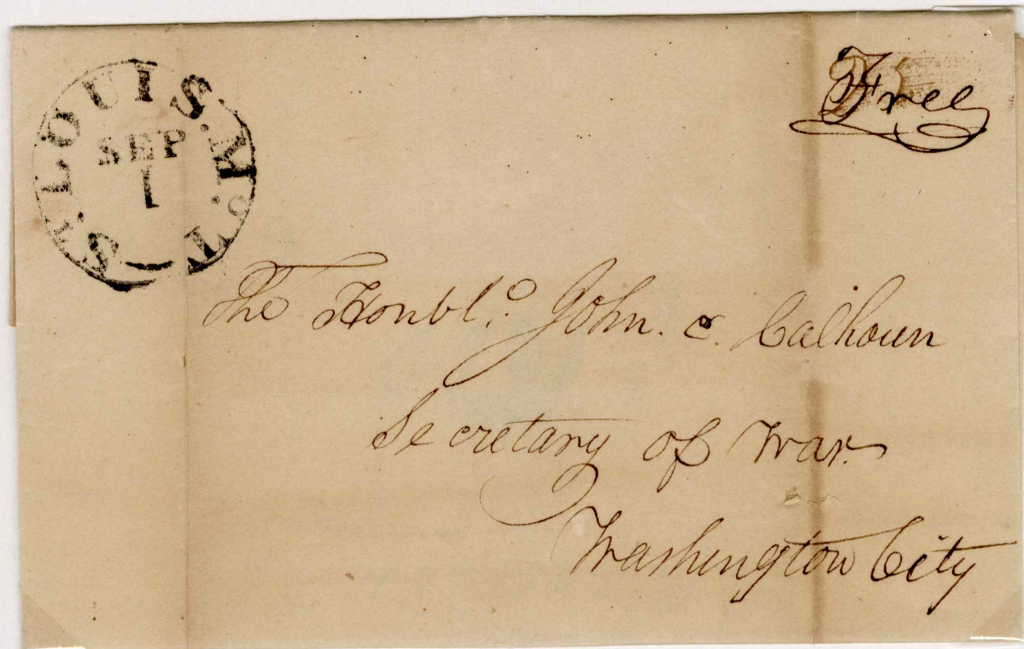 ST. LOUIS. M.o T.
SEP
1
Free
The Honbl.e John. C. Calhoun
Secretary of War.
Washington City